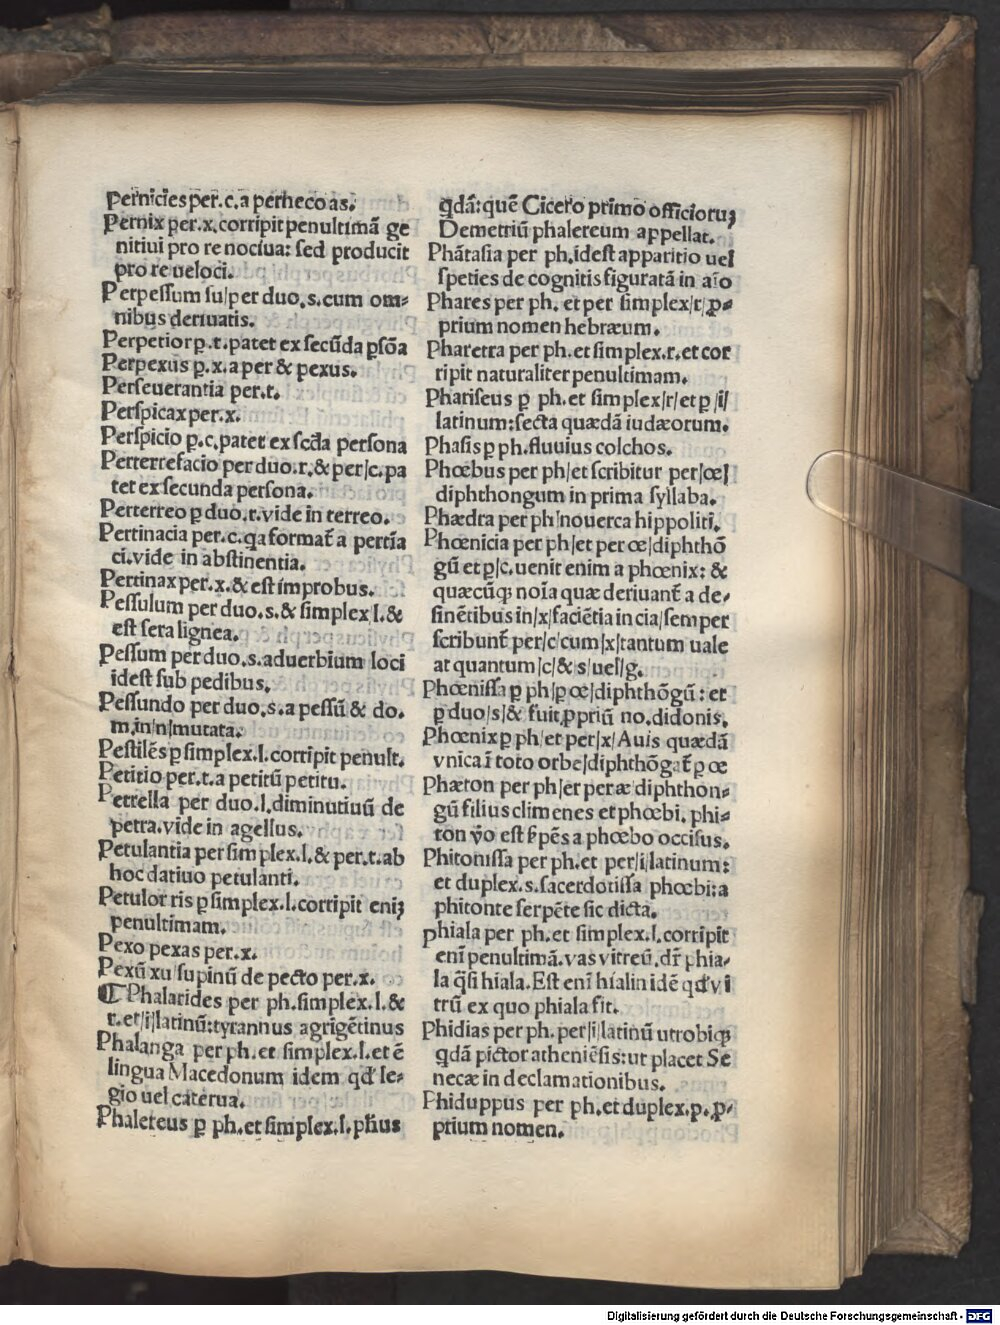 Pernicies per.c.a perneco as.
Pernix per.x.corripit penultimā ge
nitiui pro re nociua: sed producit
pro re ueloci.
Perpessum su/per duo.s.cum om⸗
nibus deriuatis.
Perpetior ꝑ.t.patet ex secūda ꝑsōa
Perpexus ꝑ.x.a per & pexus.
Perseuerantia per.t.
Perspicax per.x.
Perspicio ꝑ.c.patet ex scda persona
Perterrefacio per duo.r.& per/c.pa
tet ex secunda persona.
Perterreo ꝑ duo.r.vide in terreo.
Pertinacia per.c.qa format̄ a pertīa
ci.vide in abstinentia.
Pertinax per.x.& est improbus.
Pessulum per duo.s.& simplex l.&
est sera lignea.
Pessum per duo.s.aduerbium loci
idest sub pedibus.
Pessundo per duo.s.a pessū & do.
m.in/n/mutata.
Pestilēs ꝑ simplex.l.corripit penult.
Petitio per.t.a petitū petitu.
Petrella per duo.l.diminutiuū de
petra.vide in agellus.
Petulantia per simplex.l.& per.t.ab
hoc datiuo petulanti.
Petulor ris ꝑ simplex.l.corripit eniꝫ
penultimam.
Pexo pexas per.x.
Pexū xu supinū de pecto per.x.
¶ Phalarides per ph.simplex.l.&
r.et/i/latinū:tyrannus agrigētinus
Phalanga per ph.et simplex.l.et ē
lingua Macedonum idem qd' le⸗
gio uel caterua.
Phalereus ꝑ ph.et simplex.l.pħus
q̄dā:quē Cicero primo officioruꝫ
Demetriū phalereum appellat.
Phātasia per ph.idest apparitio uel
speties de cognitis figuratā in aīo
Phares per ph. et per simplex/r/ꝓ⸗
prium nomen hebræum.
Pharetra per ph.et simplex.r.et cor
ripit naturaliter penultimam.
Phariseus ꝑ ph.et simplex/r/et ꝑ /i/
latinum:secta quædā iudæorum.
Phasis ꝑ ph.fluuius colchos.
Phœbus per ph/et scribitur per/œ/
diphthongum in prima syllaba.
Phædra per ph/nouerca hippoliti.
Phœnicia per ph/et per œ/diphthō
gū et ꝑ/c.uenit enim a phœnix: &
quæcūqꝫ noīa quæ deriuant̄ a de⸗
sinētibus in/x/faciētia in cia/semper
scribunt̄ per/c/cum/x/tantum uale
at quantum/c/& s/uel/g.
Phœnissa ꝑ ph/ꝑ œ/diphthōgū: et
ꝑ duo/s/& fuit ꝓpriū no.didonis.
Phœnix ꝑ ph/et per/x/Auis quædā
vnica ī toto orbe/diphthōgat̄ ꝑ œ
Phæton per ph/et per æ diphthon⸗
gū filius climenes et phœbi. phi⸗
ton v̄o est s̄pēs a phœbo occisus.
Phitonissa per ph.et per/i/latinum:
et duplex.s.sacerdotissa phœbi:a
phitonte serpēte sic dicta.
phiala per ph.et simplex.l.corripit
enī penultimā.vas vitreū.dr̄ phia⸗
la q̄si hiala.Est enī híalin idē qd' vi
trū ex quo phiala fit.
Phidias per ph.per/i/latinū utrobiqꝫ
q̄dā pictor atheniēsis:ut placet Se
necæ in declamationibus.
Phiduppus per ph.et duplex.p.ꝓ⸗
prium nomen.
Digitalisierung gefördert durch die Deutsche Forschungsgemeinschaft - DFG